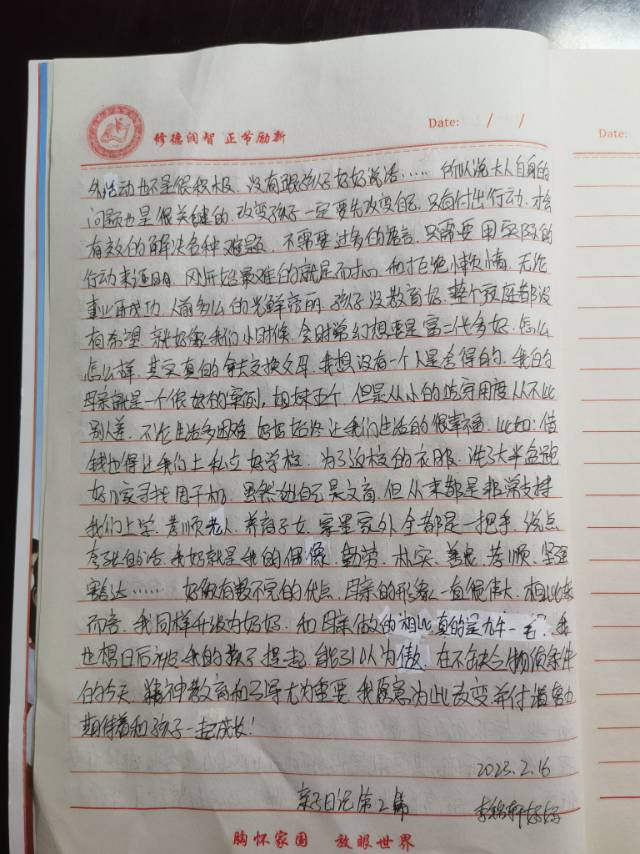 修德润智 正节励新
Date: / /
Date:
外活动也不是很积极，没有跟孩子好好说话…… 所以说大人自身的
问题也是很关键的，改变孩子一定要先改变自己，只有付出行动，才会
有效的解决各种难题，不需要过多的语言，只需要用实际的
行动来证明，刚开始最难的就是面对和拒绝懒惰情，无论
事业再成功，人前多么的光鲜亮丽，孩子没教育好，整个家庭都没
有希望，就好像我们小时候，会时常幻想要是富二代多好，怎么
怎么样，其实真的拿去交换父母，我想没有一个人是舍得的，我的
母亲就是一个很好的案例，姐妹五个，但是从小的吃穿用度从不比
别人差，不论生活多困难，妈妈始终让我们生活的很幸福，比如：借
钱也得让我们上私立好学校，为了返校的衣服，洗了大半盆跑
好几家寻找甩干机，虽然她自己是文盲，但从来都是非常支持
我们上学，孝顺老人，养育子女，家里家外全都是一把手，说点
夸张的话，我妈就是我的偶像，勤劳、朴实、善良、孝顺、坚强
豁达…… 好似有数不完的优点，母亲的形象一直很伟大，相比较
而言，我同样升级为妈妈，和母亲做的相比真的是九牛一毛，我
也想日后被我的孩子提起，能引以为傲，在不缺乏物质条件
的今天，精神教育和引导尤为重要，我愿意为此改变并付诸努力
期待着和孩子一起成长！
2023.2.16
亲子日记第2篇
李 轩妈妈
胸怀家国 放眼世界